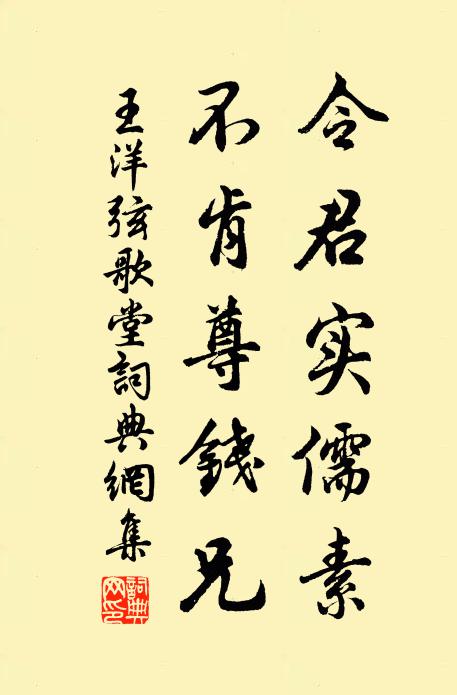 令君实儒素
不肯尊錢兄
王洋弦歌堂詞典網集
詞典网印